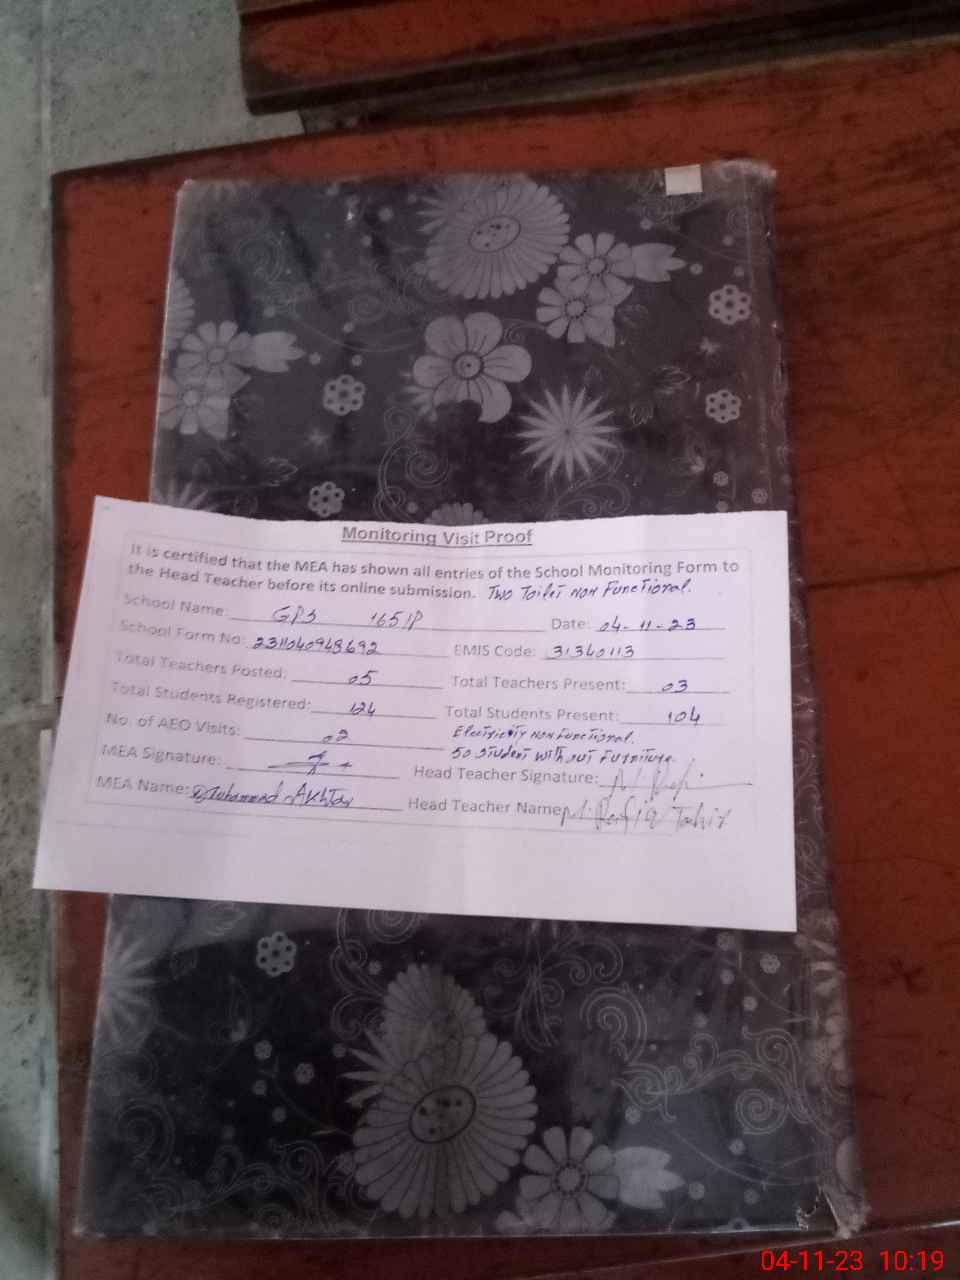 Monitoring Visit Proof
It is certified that the MEA has shown all entries of the School Monitoring Form to
the Head Teacher before its online submission. Two Toilet non Functional.
School Name: GPS 165/P Date: 04-11-23
School Form No: 2311040948692 EMIS Code: 31340113
Total Teachers Posted: 05 Total Teachers Present: 03
Total Students Registered: 124 Total Students Present: 104
No. of AEO Visits: 02 Electricity non functional.
50 Student without Furniture.
MEA Signature: Head Teacher Signature:
MEA Name: Muhammad Akhtar Head Teacher Name: M. Rafiq Tahir
04-11-23 10:19